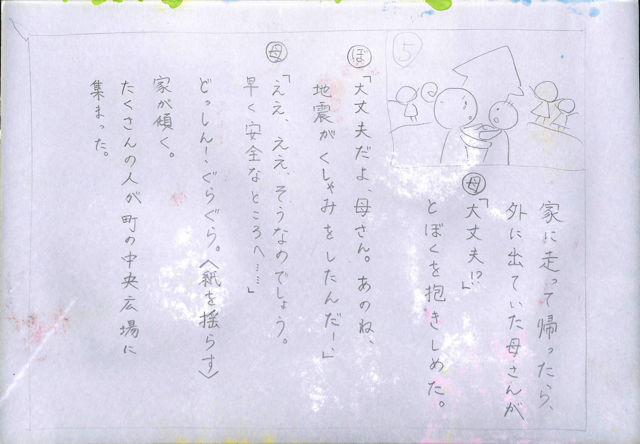 ⑤
家に走って帰ったら、
外に出ていた母さんが
母「大丈夫!?」
とぼくを抱きしめた。
ぼ「大丈夫だよ、母さん。あのね、
地震がくしゃみをしたんだ!」
母「ええ、ええ、そうなのでしょう。
早く安全なところへ……」
どっしん!ぐらぐら。〈紙を揺らす〉
家が傾く。
たくさんの人が町の中央広場に
集まった。